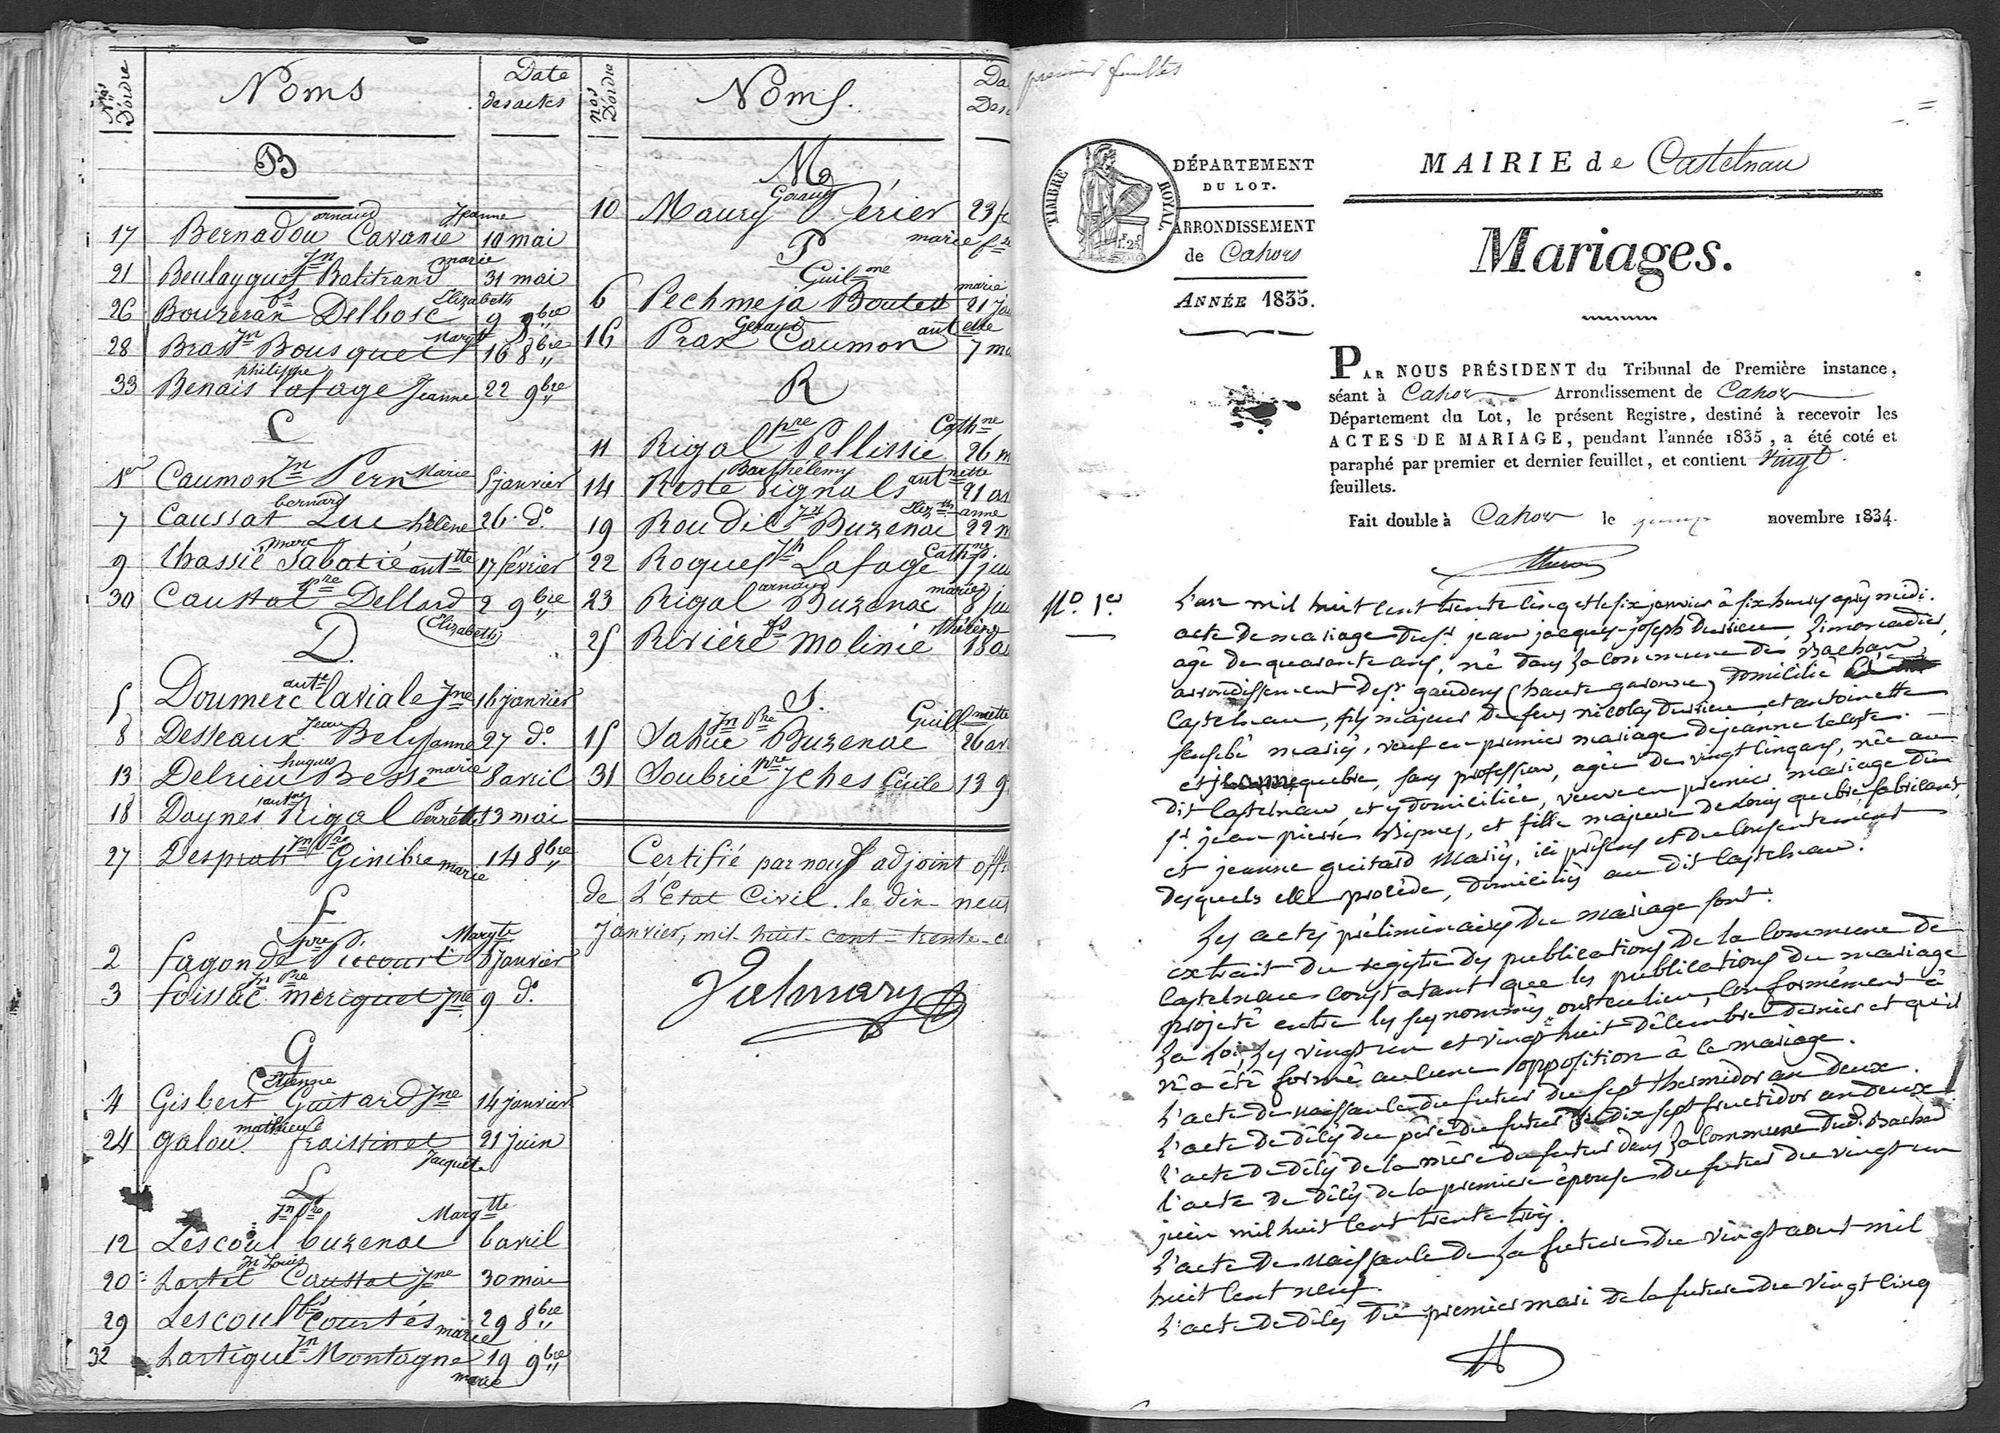 Nos D'ordre
Noms
Date des actes
B
17 Bernadou arnaud Cavanié Jeanne 10 mai
21 Boulayguet Jn Balitrand marie 31 mai
26 Bouzeran fs Delbosc Elizabeth 9 8bre
28 Bras Jn Bousquet Margte 16 8bre
33 Benais philippe lafage Jeanne 22 9bre
C
1er Caumon Jn Pern Marie 5 janvier
7 Caussat bernard Luc hélène 26 do
9 Chassié marc Sabatié antte 17 février
30 Caussat pre Dellard Elizabeth 2 9bre
D.
5 Doumerc ante laviale Jne 16 janvier
8 Desseaux Jean Bely anne 27 do
13 Delrieu hugues Besse marie 8 avril
18 Daynes antne Rigal Perrette 13 mai
27 Desprats Jn Pre Ginibre marie 14 8bre
F
2 fagonde pre Margte 6 janvier
3 foissac Jn Pre meriguet Jne 9 do
G
4 Gisbert Etienne Guitard Jne 14 janvier
24 Galou mathieu fraissinet Jacquete 21 juin
L
12 Lescoul Jn Pre buzenac Margtte 6 avril
20 Lartet Jn Louis Caussat Jne 30 mai
29 Lescoul fs Courtés marie 29 8bre
32 Lartigue Jn Montagne marie 19 9bre
nos D'ordre
Noms.
M
10 Maury Geraud Périer marie fse 23
P
6 Pechmeja Guilme Boutet marie 21
16 Prax Geraud Caumon antette 7
R
11 Rigal pre Pellissié Cathne 26
14 Resté Barthelemy Vignals antnette 21
19 Roudil Jn Buzenac Elizth anne 22
22 Roques Jn Lafage Cathne 7
23 Rigal arnaud Buzenac marie 8
25 Rivière fs Molinié thérèse 18
S.
15 Sahuc Jn Pre Buzenac Guillmette 26
31 Soubrié pre Iches Cécile 13
Certifié par nous adjoint
de L'État Civil. le dix-neuf
Janvier, mil-huit-cent-trente-
Valmary
premier feuillet
TIMBRE ROYAL
1f. 25
DÉPARTEMENT
DU LOT.
ARRONDISSEMENT
de Cahors
ANNÉE 1835.
MAIRIE de Castelnau
Mariages.
PAR NOUS PRÉSIDENT du Tribunal de Première instance,
séant à Cahors Arrondissement de Cahors
Département du Lot, le présent Registre, destiné à recevoir les
ACTES DE MARIAGE, pendant l'année 1835, a été coté et
paraphé par premier et dernier feuillet, et contient vingt
feuillets.
Fait double à Cahors le quinze novembre 1834.
No. 1er.
L'an mil huit cent trente cinq et le six janvier à six heures après midi.
acte de mariage du sr. jean jacques-joseph Durrieu, limonadier,
agé de quarante ans, né dans la commune de Bachan,
arrondissement de st. gaudens (haute garonne) domicilié
Castelnau, fils majeur de feus nicolas durrieu et antoinette
mariés, veuf en premier mariage de jeanne lacoste.
et quebre, sans profession, agée de vingt cinq ans, née au
dit Castelnau, et y domiciliée, veuve en premier mariage du
sr. jean pierre Bismes, et fille majeure de Louis quebre, fabricant,
et jeanne guitard Mariés, ici présens et du consentement
desquels elle procède, domiciliés au dit Castelnau.
Les actes préliminaires du mariage sont:
extrait du registre des publications de la Commune de
Castelnau constatant que les publications du mariage
projeté entre les susnommés ont eu lieu, conformément à
la Loi, les vingt un et vingt huit décembre dernier et qu'il
n'a été formé aucune opposition à ce mariage.
L'acte de naissance du futur du sept thermidor an deux.
L'acte de décès du père du futur de dix sept fructidor an deux.
L'acte de décès de la mère du futur dans la Commune dud. Bachan
l'acte de décès de la première épouse du futur du vingt un
juin mil huit cent trente trois.
L'acte de naissance de la future du vingt aout mil
huit cent neuf.
L'acte de décès du premier mari de la future du vingt cinq